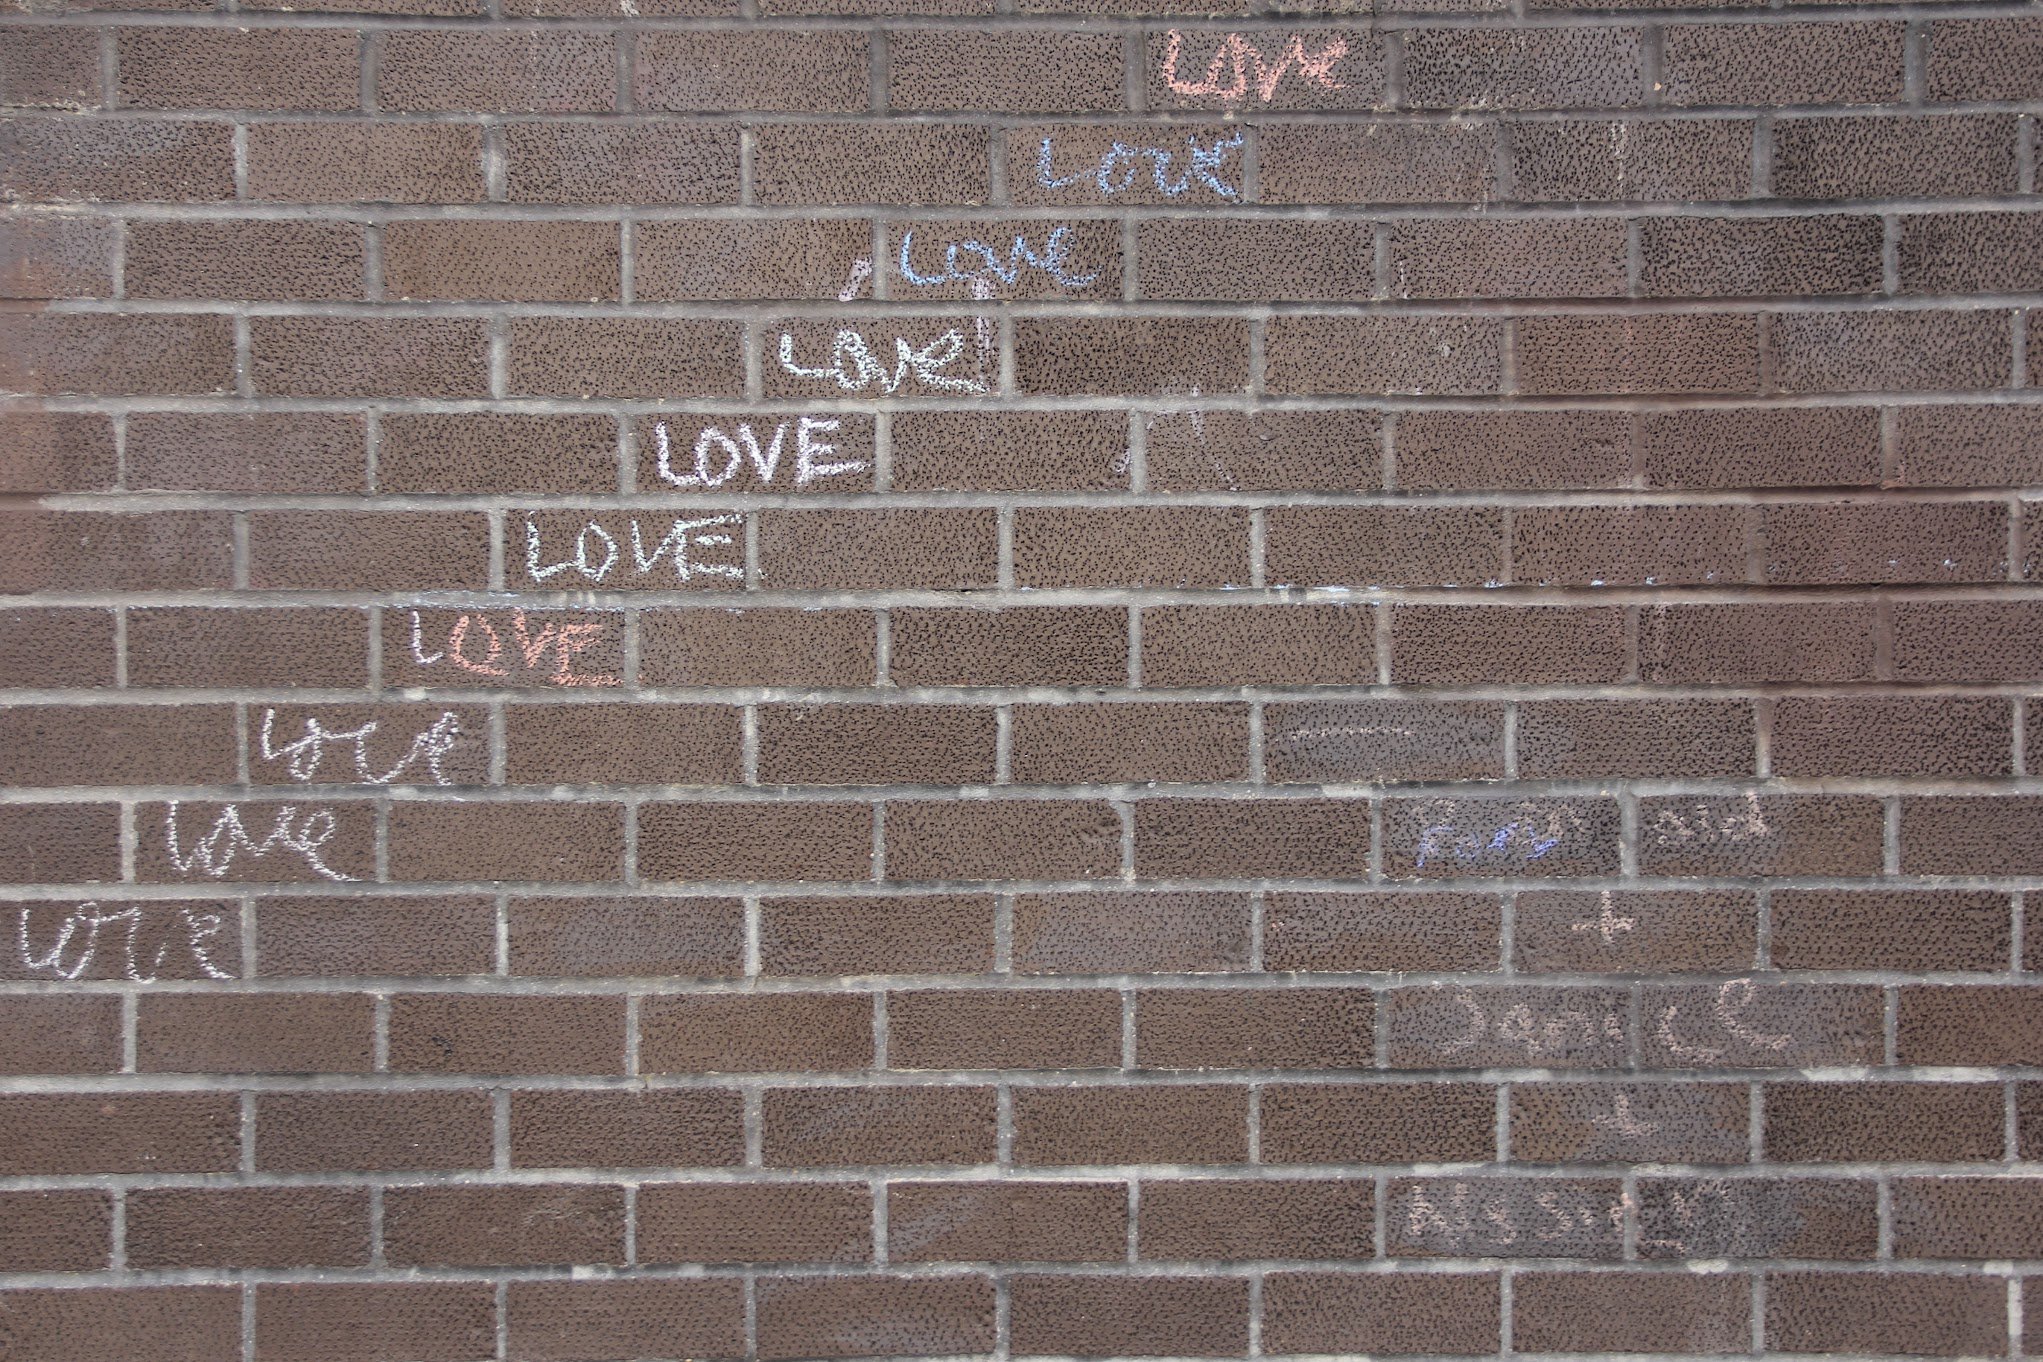 Love
Love
Love
Love
LOVE
LOVE
LOVE
Love
Love
Love
and
+
Janice
+